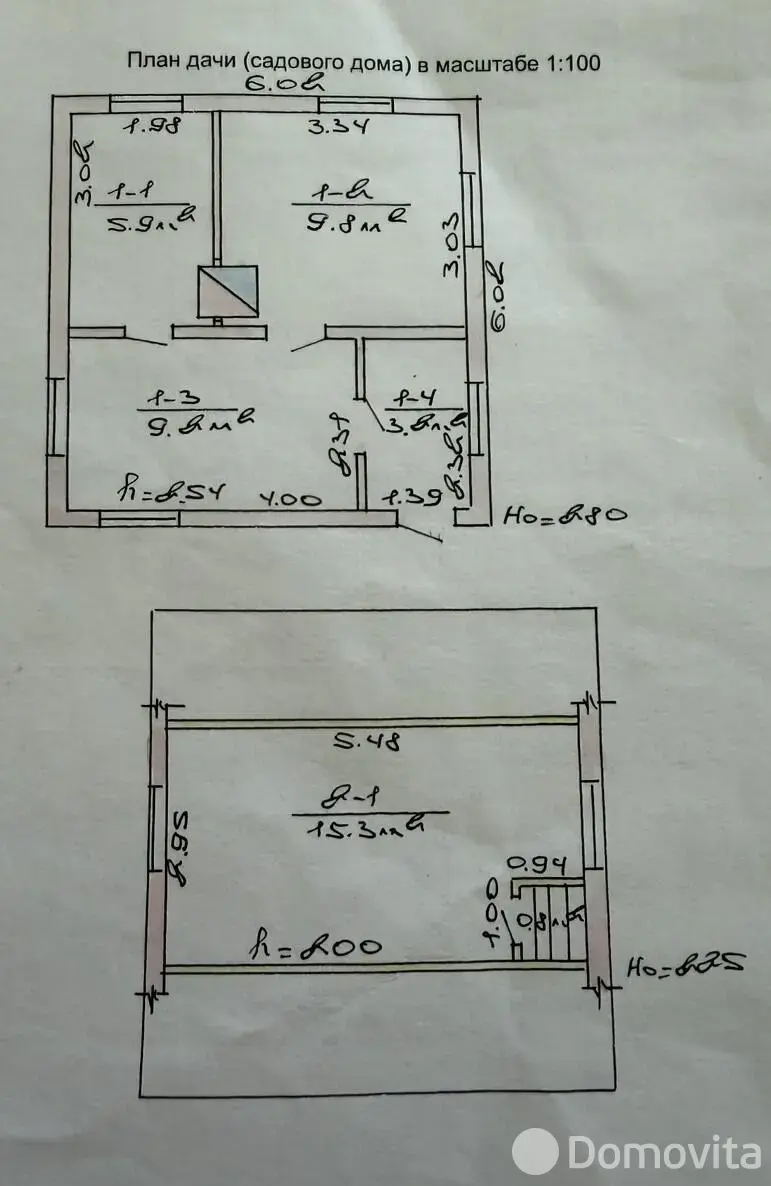 План дачи (садового дома) в масштабе 1:100
6.02
1.98
3.34
3.02
1-1
5.9м2
1-2
9.8м2
3.03
6.02
1-3
9.2м2
1-4
3.2м2
2.31
2.32
h=2.54
4.00
1.39
Ho=2.80
5.48
2-1
15.3м2
2.95
0.94
1.00
0.8м2
h=2.00
Ho=2.25
Domovita